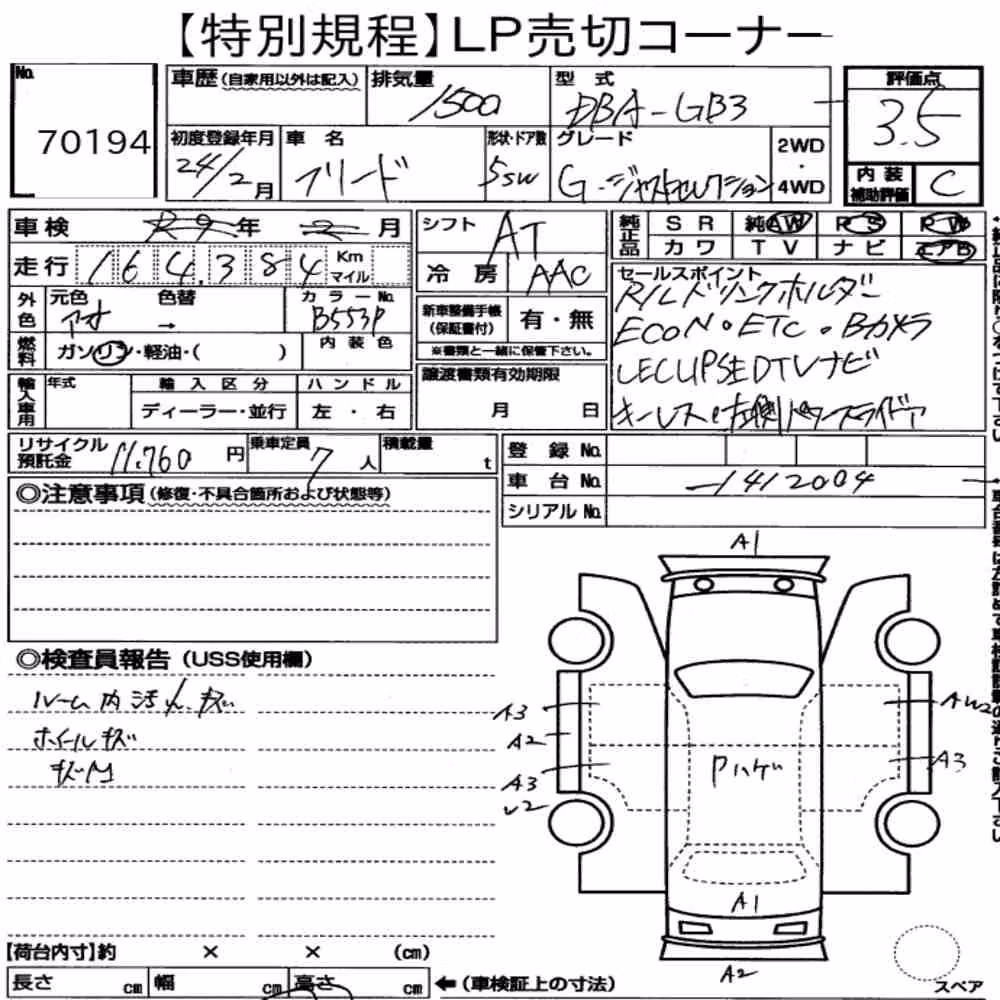 【特別規程】LP売切コーナー
No.
70194
車歴(自家用以外は記入)
排気量
1500
型式
DBA-GB3
評価点
3.5
初度登録年月
24/2月
車名
フリード
形状・ドア数
5SW
グレード
G.ジャストセレクション
2WD
・
4WD
内装
補助評価
C
車検
R9年 2月
走行
164,384
Km
マイル
シフト
AT
冷房
AAC
純正品
SR 純AW PS PW
カワ TV ナビ エアB
外色
元色
アオ
色替
→
カラーNo.
B553P
燃料
ガソリン・軽油・( )
内装色
新車整備手帳
(保証書付)
有・無
※書類と一緒に保管下さい。
セールスポイント
R/Lドリンクホルダー
ECON・ETC・Bカメラ
ECLIPSE DTVナビ
キーレス 左側パワースライドドア
輸入車用
年式
輸入区分
ディーラー・並行
ハンドル
左・右
譲渡書類有効期限
月 日
リサイクル
預託金
11.760円
乗車定員
7人
積載量
t
登録No.
車台No.
-1412004
シリアルNo.
◎注意事項(修復・不具合箇所および状態等)
◎検査員報告(USS使用欄)
ルーム内汚れ、キズ
ホイールキズ
キズM
A1
A3
A2
A3
U2
Pハゲ
AW2
A3
A1
A2
スペア
【荷台内寸】約 × × (cm)
長さ cm 幅 cm 高さ cm
←(車検証上の寸法)